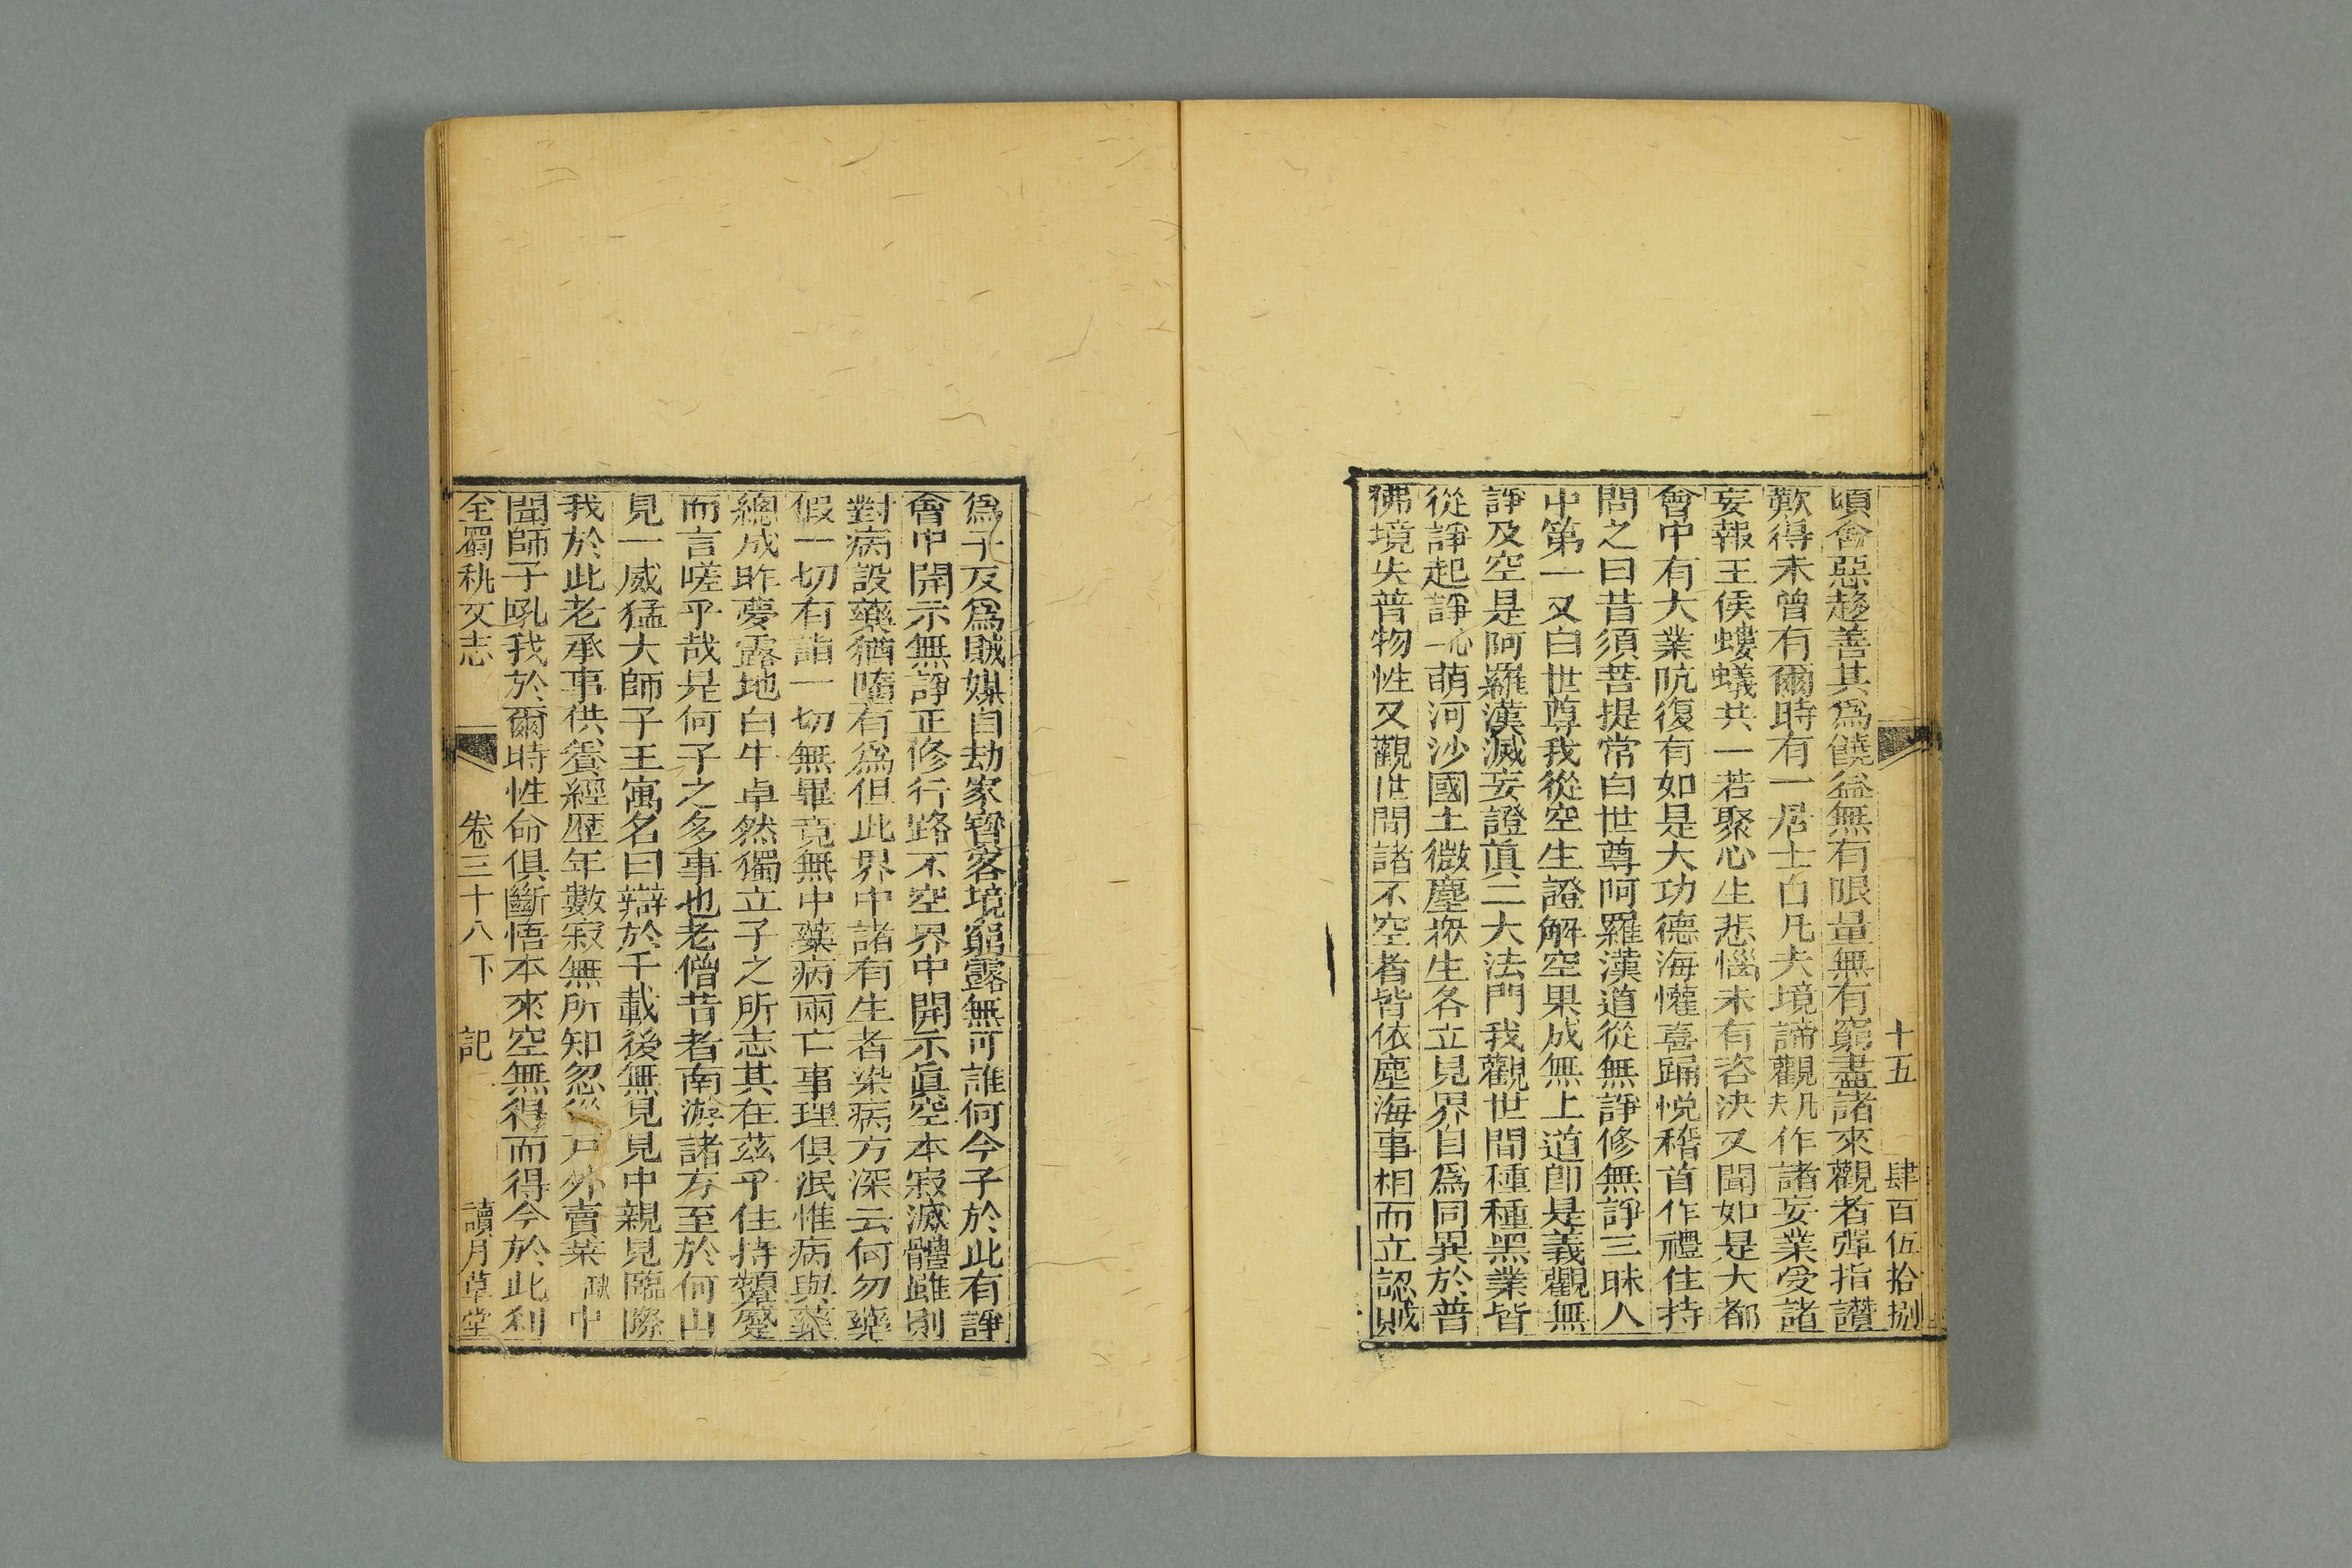 十五 肆百伍拾捌
頃舍惡趍善其爲饒益無有限量無有窮盡諸來觀者彈指讚
歎得未曾有爾時有一居士白凡夫境諦觀凡夫作諸妄業受諸
妄報王侯螻蟻共一若聚心生悲惱未有咨決又聞如是大都
會中有大業吭復有如是大功德海懽喜踊悅稽首作禮住持
問之曰昔須菩提常白世尊阿羅漢道從無諍修無諍三昧人
中第一又白世尊我從空生證解空果成無上道卽是義觀無
諍及空是阿羅漢滅妄證眞二大法門我觀世間種種黑業皆
從諍起諍心一萌河沙國土微塵衆生各立見界自爲同異於普
佛境失普物性又觀世間諸不空者皆依塵海事相而立認賊
爲子反爲賊媒自劫家寶客境窮露無可誰何今子於此有諍
會中開示無諍正修行路不空界中開示眞空本寂滅體雖則
對病設藥猶墮有爲但此界中諸有生者染病方深云何勿藥
假一切有詣一切無畢竟無中藥病兩亡事理俱泯惟病與藥
總成昨夢露地白牛卓然獨立子之所志其在茲乎住持顰蹙
而言嗟乎哉是何子之多事也老僧昔者南游諸方至於何山
見一威猛大師子王寓名曰辯於千載後無見見中親見臨際
我於此老承事供養經歷年數寂無所知忽從戸外賣菜 缺 中
聞師子吼我於爾時性命俱斷悟本來空無得而得今於此利
全蜀秇文志 卷三十八下 記 讀月草堂